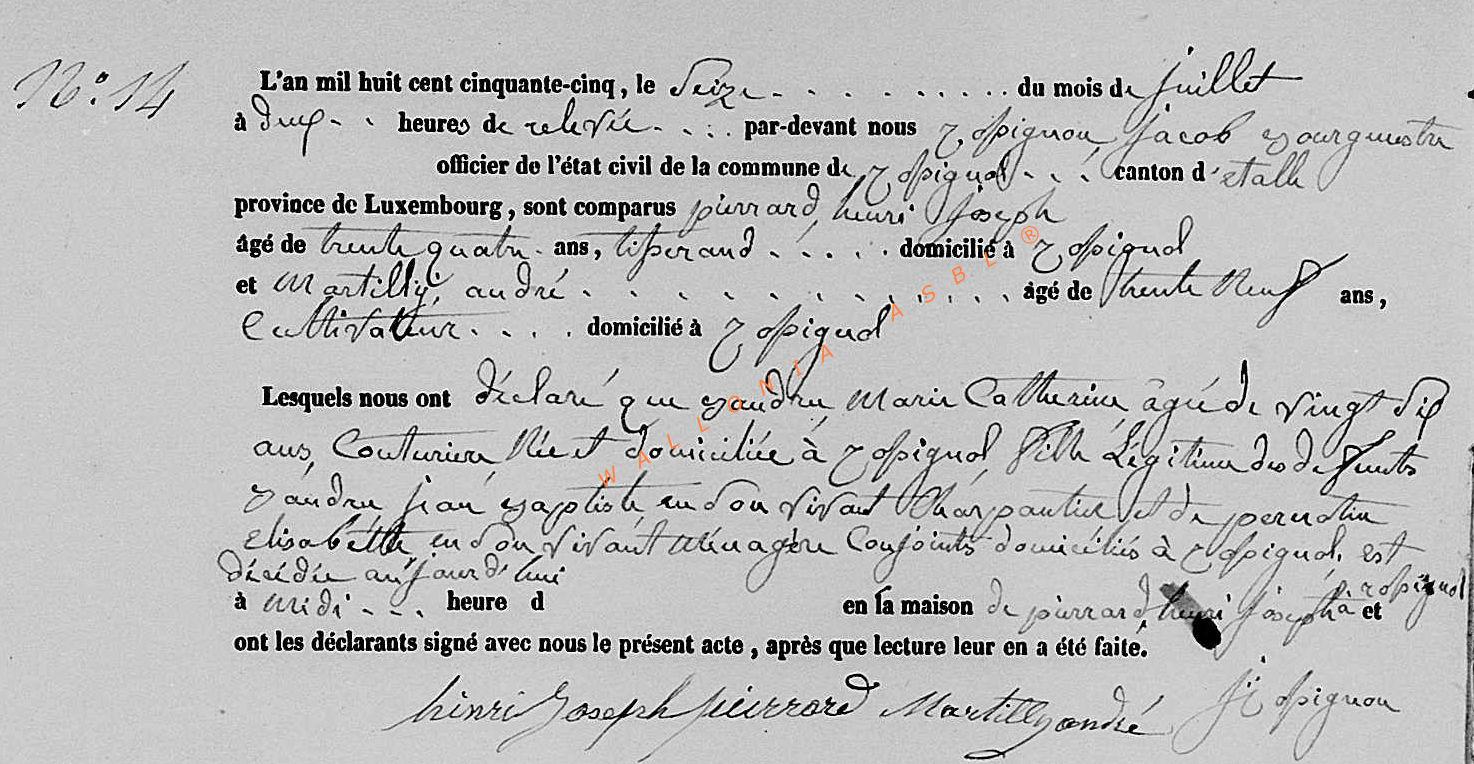 N°. 14
L'an mil huit cent cinquante-cinq, le Seize . . . . . . . . . . du mois de juillet
à deux . . heures de relevée . . . . par-devant nous Rossignon jacob Bourgmestre
officier de l'état civil de la commune de Rossignol . . . canton d'étalle
province de Luxembourg, sont comparus pierrard, henri joseph
âgé de trente quatre . ans, tisserand . . . . . domicilié à Rossignol
et Martilly, andré . . . . . . . . . . . . . âgé de trente Neuf ans,
Cultivateur . . . . domicilié à Rossignol
Lesquels nous ont déclaré que Baudru Marie Catherine âgée de vingt six
ans, Couturière Née et domiciliée à Rossignol, Fille Légitime des defunts
Baudru jean Baptiste en son vivant Charpantier et de pernotin
elisabétthe en son vivant Ménagère Conjoints domiciliés à Rossignol, est
décédée aujourd'hui
à midi . . . heure d en la maison de pierrard, henri joseph à rossignol et
ont les déclarants signé avec nous le présent acte, après que lecture leur en a été faite.
henri Joseph pierrard Martilly andré j Rossignon
WALLONIA ASBL ®